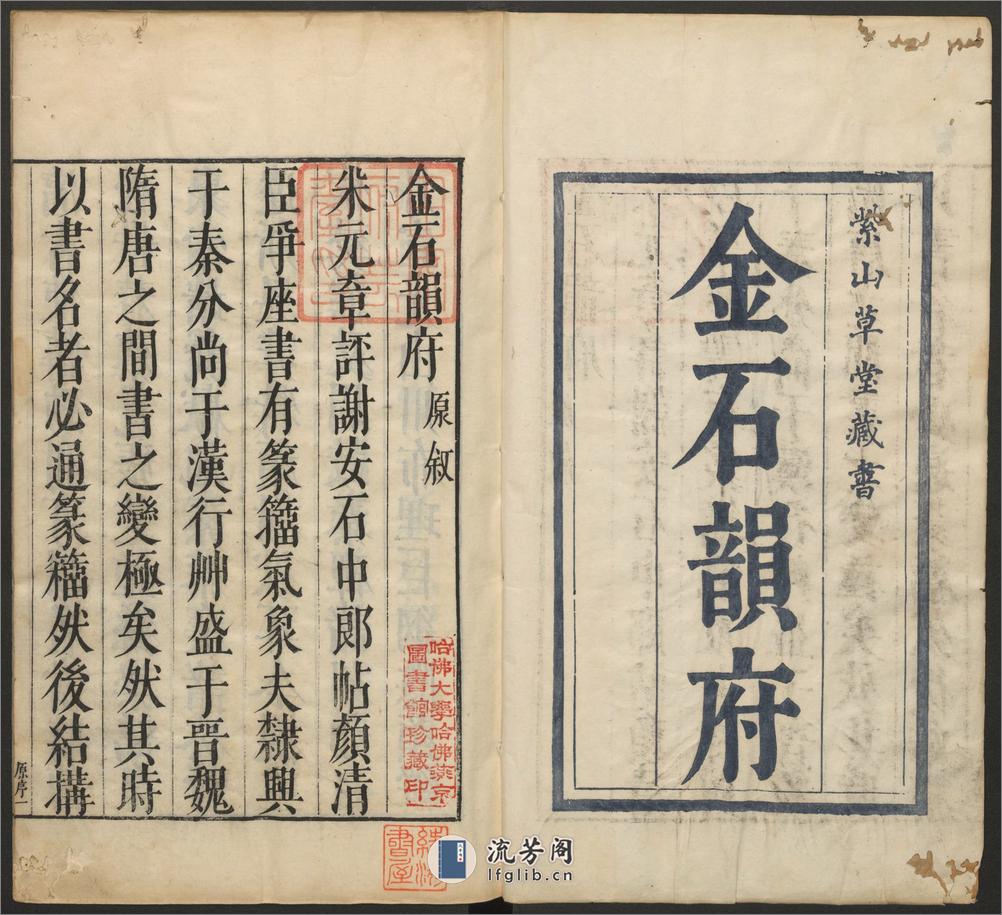 紫山草堂藏書
金石韻府
金石韻府 原敘
米元章評謝安石中郎帖顔清
臣爭座書有篆籀氣象夫隸興
于秦分尚于漢行艸盛于晉魏
隋唐之間書之變極矣然其時
以書名者必通篆籀然後結搆
原序一
哈佛大學哈佛燕京
圖書館珍藏印
書屋
流芳阁
lfglib.cn